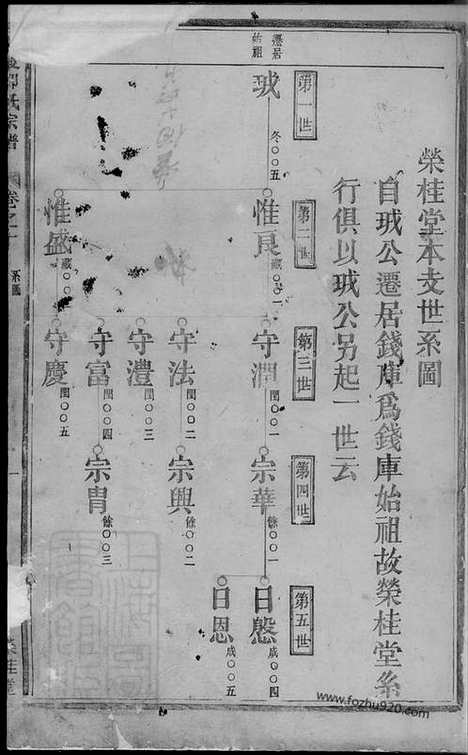 榮桂堂本支世系圖
自珬公遷居錢庫爲錢庫始祖故榮桂堂系
行俱以珬公另起一世云
第一世
第二世
第三世
第四世
第五世
遷居
始祖
珬
冬〇〇五
惟良
藏〇〇一
惟盛
藏〇〇
守潤
閏〇〇一
守法
閏〇〇二
守澧
閏〇〇三
守富
閏〇〇四
守慶
閏〇〇五
宗華
餘〇〇一
宗興
餘〇〇二
宗胄
餘〇〇三
日慇
成〇〇四
日恩
成〇〇五
氏宗譜
卷之二
系圖
榮桂堂
www.fozhu920.com